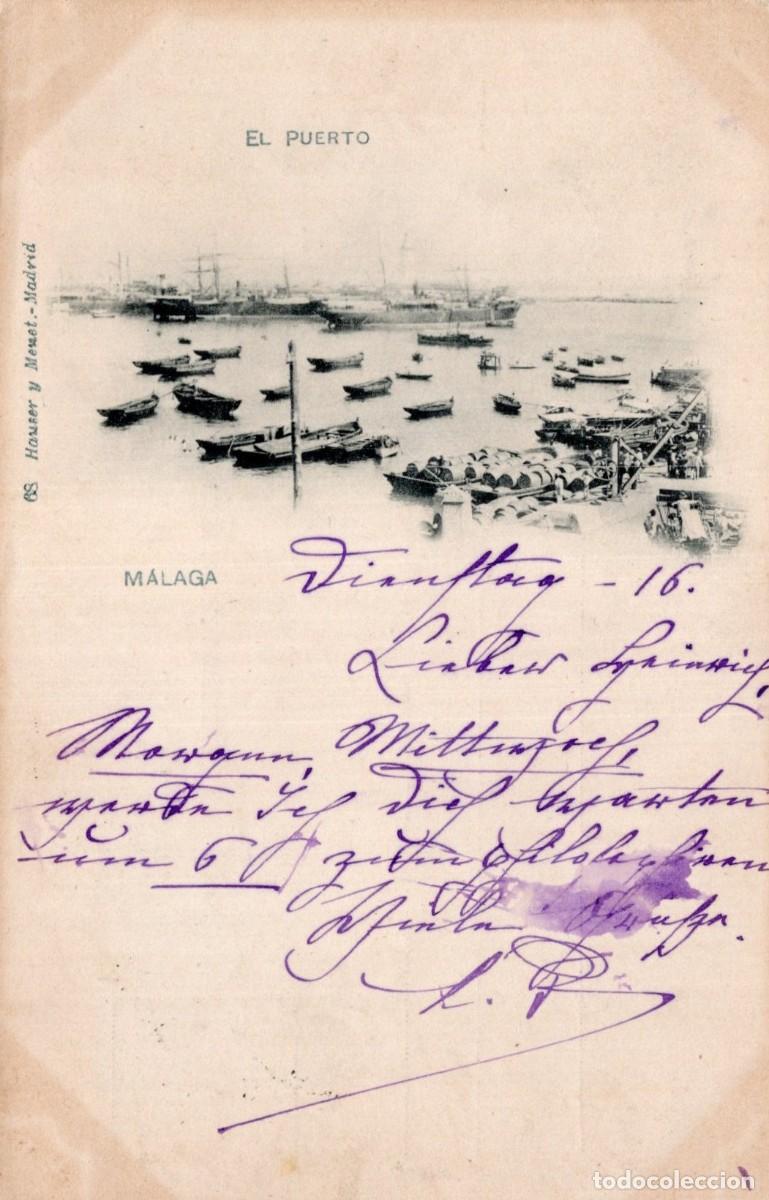 EL PUERTO
68 Hauser y Menet.-Madrid
MÁLAGA
Dienstag - 16.
Lieber Heinrich,
Morgen, Mittwoch,
werde Ich Dich erwarten
um 6 zum philologiren
Viele Grüße.
todocoleccion